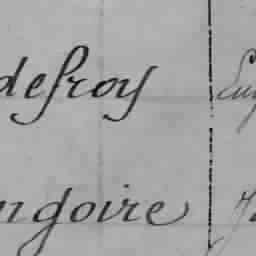 defroy Eug
ngoire